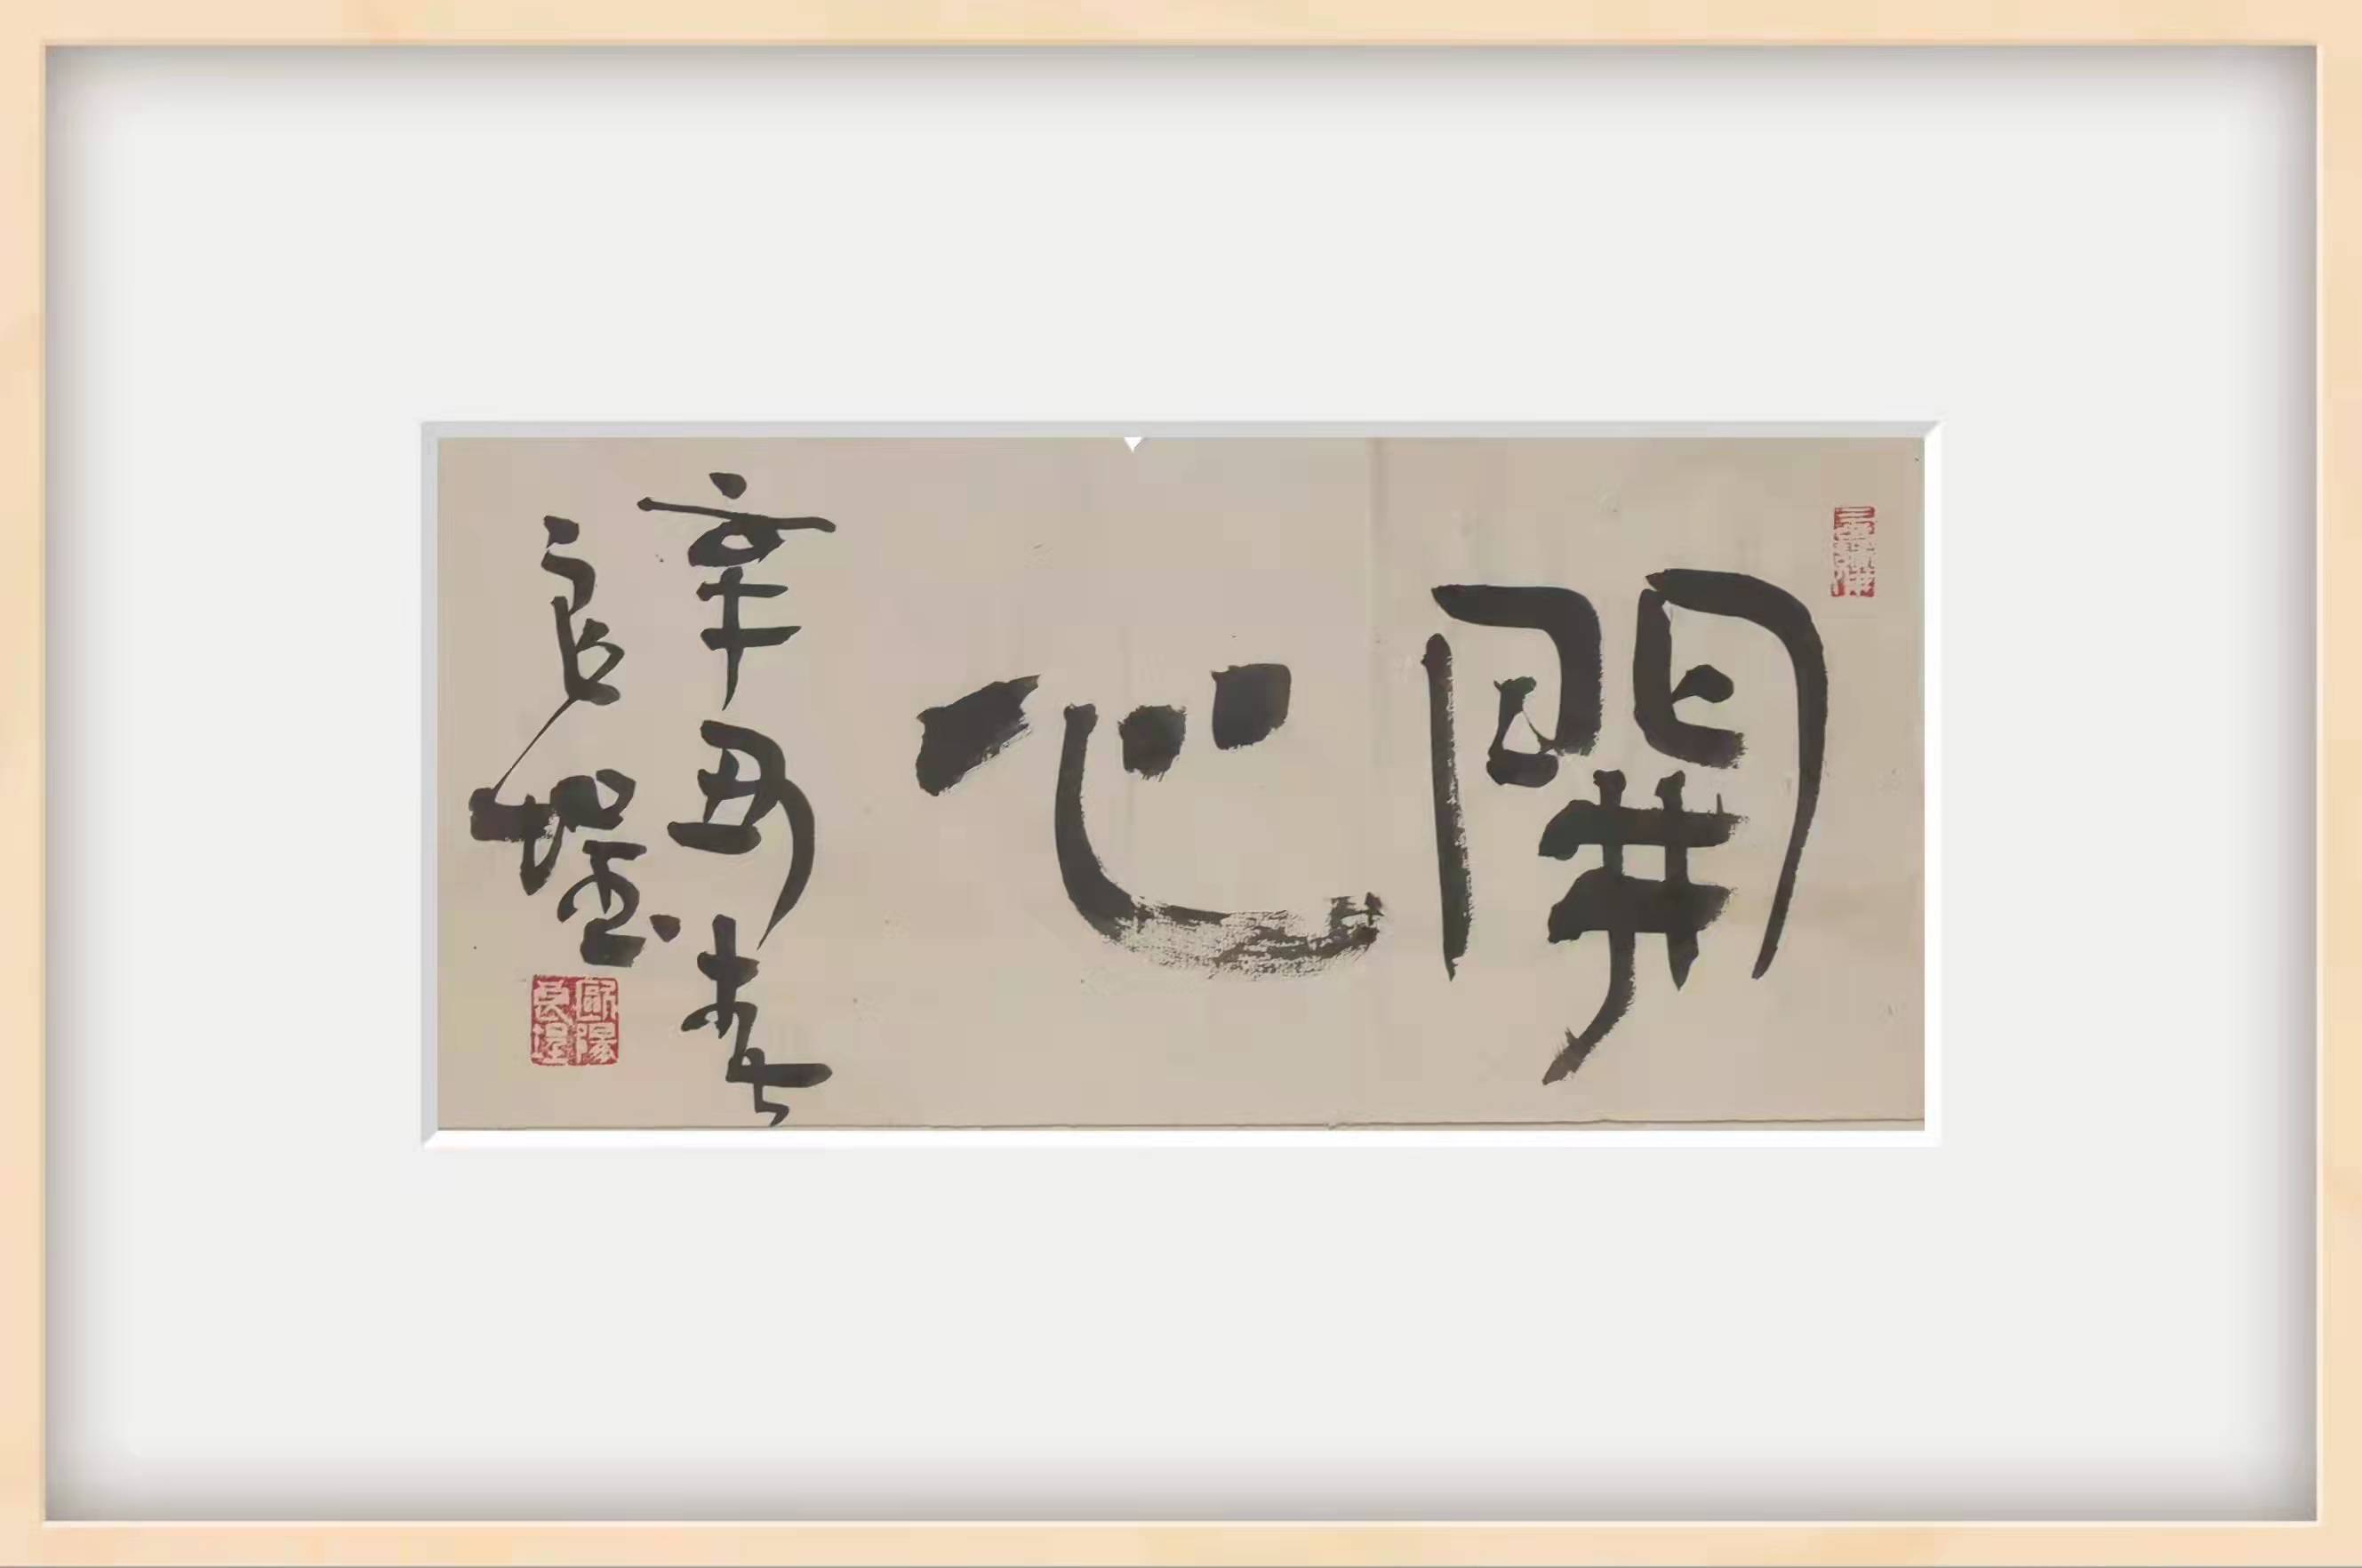 開心
辛丑春
良
歐陽
良